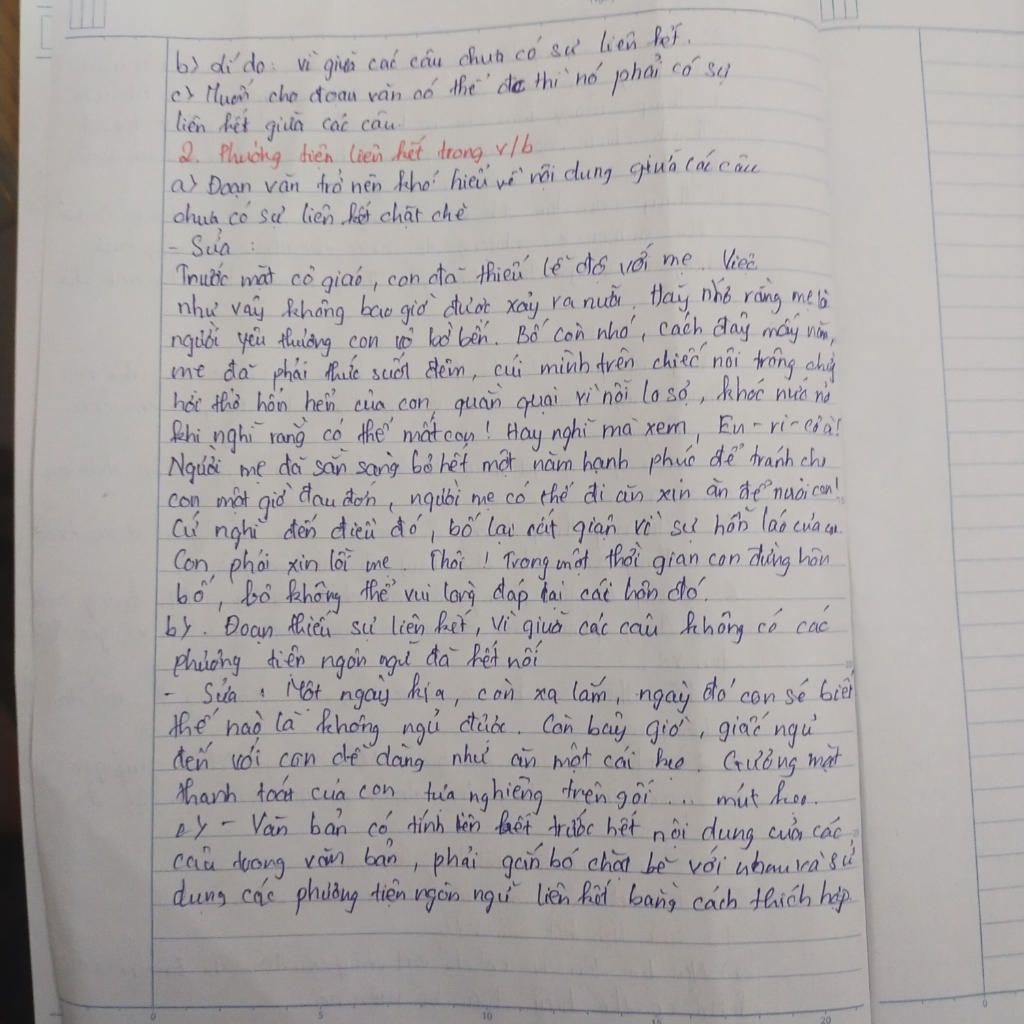 b) Lí do: vì giữa các câu chưa có sự liên kết.
c) Muốn cho đoạn văn có thể đc thì nó phải có sự
liên kết giữa các câu.
2. Phương tiện liên kết trong v/b
a) Đoạn văn trở nên khó hiểu vì nội dung giữa các câu
chưa có sự liên kết chặt chẽ
- Sửa :
Trước mặt cô giáo, con đã thiếu lễ độ với mẹ. Việc
như vậy không bao giờ được xảy ra nữa. Hãy nhớ rằng mẹ là
người yêu thương con vô bờ bến. Bố còn nhớ, cách đây mấy năm,
mẹ đã phải thức suốt đêm, cúi mình trên chiếc nôi trông chừng
hơi thở hổn hển của con, quằn quại vì nỗi lo sợ, khóc nức nở
khi nghĩ rằng có thể mất con! Hãy nghĩ mà xem, En-ri-cô à!
Người mẹ đã sẵn sàng bỏ hết một năm hạnh phúc để tránh cho
con một giờ đau đớn, người mẹ có thể đi ăn xin ăn để nuôi con!
Cứ nghĩ đến điều đó, bố lại rất giận vì sự hỗn láo của con.
Con phải xin lỗi mẹ. Thôi! Trong một thời gian con đừng hôn
bố, bố không thể vui lòng đáp lại cái hôn đó.
b). Đoạn thiếu sự liên kết, vì giữa các câu không có các
phương tiện ngôn ngữ để kết nối
- Sửa : Một ngày kia, còn xa lắm, ngày đó con sẽ biết
thế nào là không ngủ được. Còn bây giờ, giấc ngủ
đến với con dễ dàng như ăn một cái kẹo. Gương mặt
thanh thoát của con tựa nghiêng trên gối ... mút kẹo.
c) - Văn bản có tính liên kết trước hết nội dung của các
câu trong văn bản, phải gắn bó chặt chẽ với nhau và sử
dụng các phương tiện ngôn ngữ liên kết bằng cách thích hợp